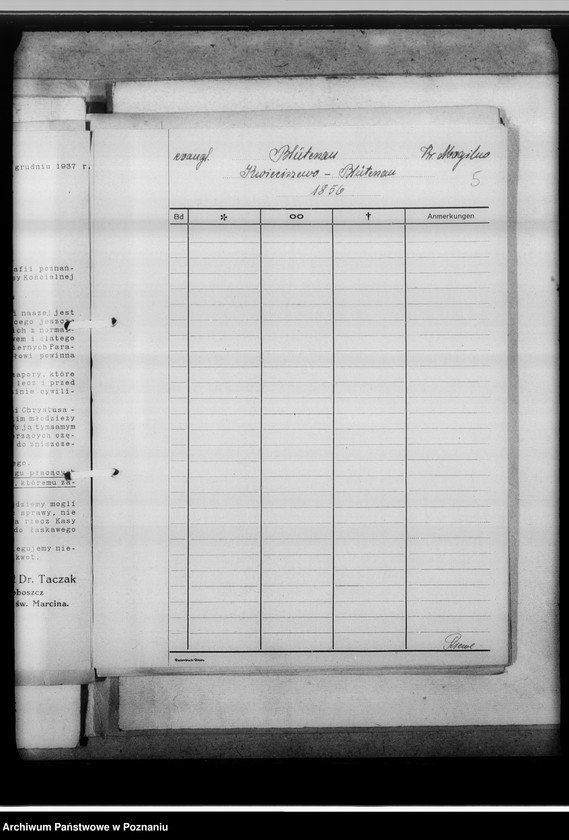 grudniu 1937 r.
afii poznań-
y Kościelnej
i naszej jest
cego
ich z normal-
wem i dlatego
iernych Para-
łowi powinna
zapory, które
lecz i przed
inie cywili-
i Chrystusa -
im młodzieży
o ja tymsamym
rzących
do zniszcze-
ego.
gu płacący
, któremu za-
dziemy mogli
sprawy, nie
a rzecz Kasy
do łaskawego
egujemy nie-
kwot.
Dr. Taczak
boszcz
św. Marcina.
evangl. Blütenau Kr. Mogilno
Kwieciszewo - Blütenau 5
1856
Bd * oo † Anmerkungen
Archiwum Państwowe w Poznaniu